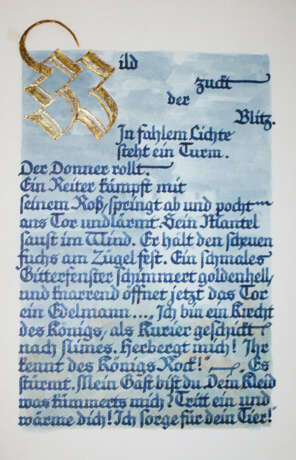 Wild
zuckt
der
Blitz.
In fahlem Lichte
steht ein Turm.
Der Donner rollt.
Ein Reiter kämpft mit
seinem Roß, springt ab und pocht
ans Tor und lärmt. Sein Mantel
saust im Wind. Er hält den scheuen
fuchs am Zügel fest. Ein schmales
Gitterfenster schimmert goldenhell,
und knarrend öffnet jetzt das Tor
ein Edelmann...., Ich bin ein Knecht
des Königs, als Kurier geschickt
nach Nimes. Herbergt mich! Ihr
kennt des Königs Rock!" Es
stürmt. Mein Gast bist du. Dein Kleid
was kümmerts mich? Tritt ein und
wärme dich! Ich sorge für dein Tier!